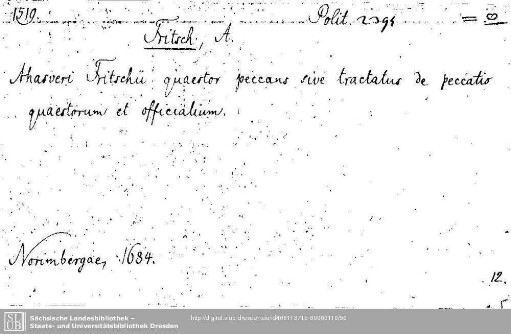 1519. Polit. 239f = 8
Fritsch, A.
Ahasveri Fritschii quaestor peccans sive tractatus de peccatis
quaestorum et officialium.
Norimbergae, 1684.
12.
SLUB Sächsische Landesbibliothek –
Staats- und Universitätsbibliothek Dresden